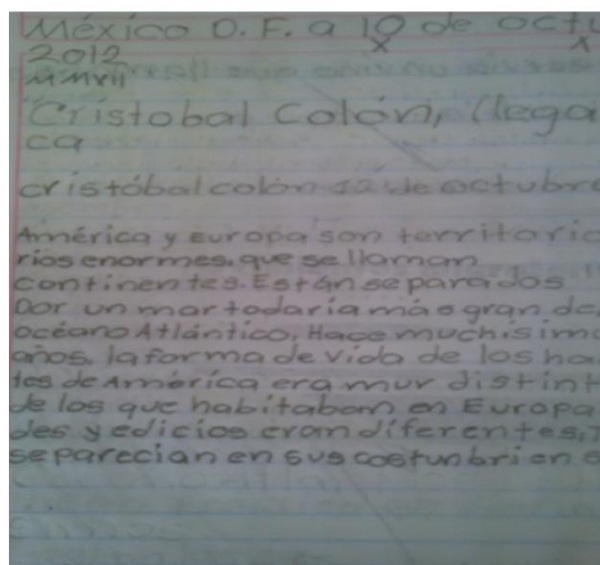 México D.F. a 10 de octu
x x
2012
MMVII
Cristobal Colón, llega
ca
cristóbal colón 12 de octubre
América y Europa son territorio
rios enormes. que se llaman
continentes. Están separados
Por un mar todaría más gran de.
océano Atlántico, Hace muchisimo
años. la forma de vida de los ha
tes de América era mur distint
de los que habitabam en Europa
des y edicios eram diferentes,
se parecian en sus costunbri en s